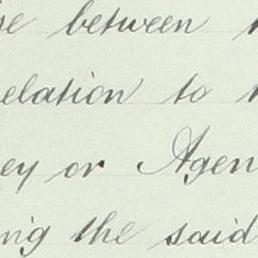 se between
elation to
ey or Agen
ng the said